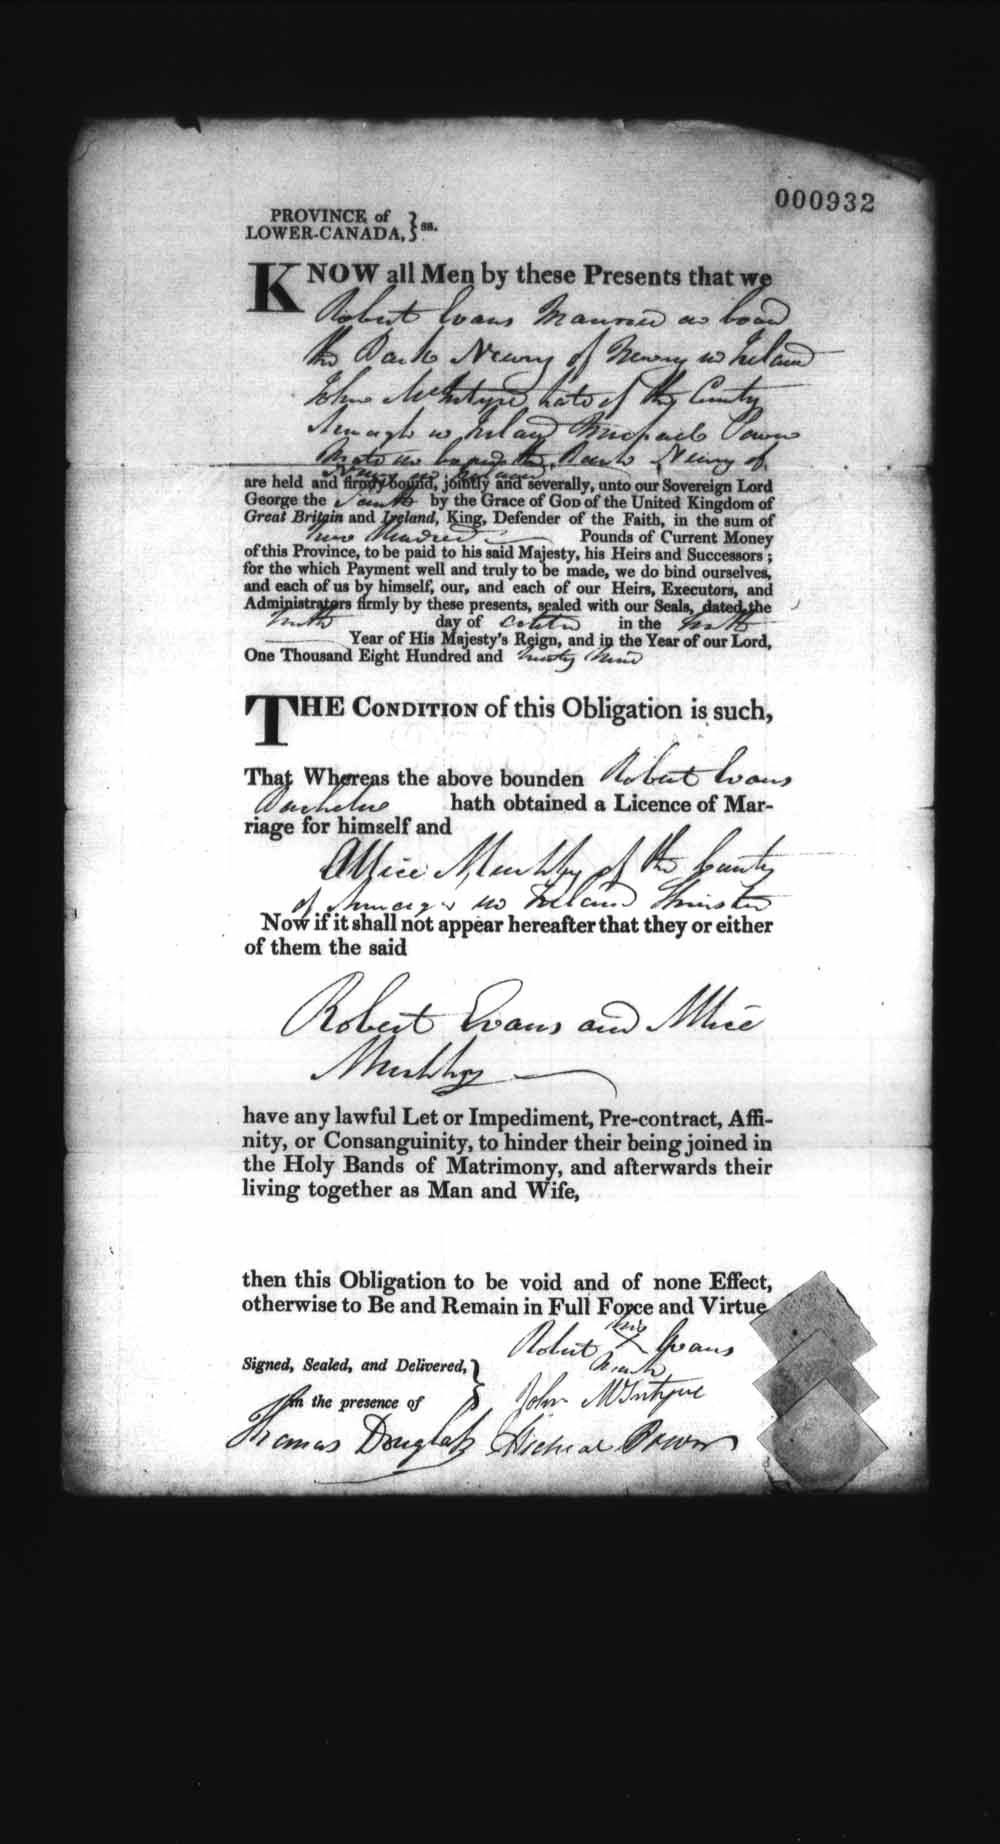 000932
PROVINCE of
LOWER-CANADA, } ss.
KNOW all Men by these Presents that we
Robert Evans on board
the Bark Newry of Newry in Ireland
John McIntyre late of the County
in Ireland Michael Power
Mate on board the Bark Newry of
Newry in Ireland
are held and firmly bound, jointly and severally, unto our Sovereign Lord
George the Fourth by the Grace of God of the United Kingdom of
Great Britain and Ireland, King, Defender of the Faith, in the sum of
Hundred Pounds of Current Money
of this Province, to be paid to his said Majesty, his Heirs and Successors ;
for the which Payment well and truly to be made, we do bind ourselves,
and each of us by himself, our, and each of our Heirs, Executors, and
Administrators firmly by these presents, sealed with our Seals, dated the
day of in the
Year of His Majesty's Reign, and in the Year of our Lord,
One Thousand Eight Hundred and twenty Nine
THE CONDITION of this Obligation is such,
That Whereas the above bounden Robert Evans
Bachelor hath obtained a Licence of Mar-
riage for himself and
Allice of the County
of in Ireland Spinster
Now if it shall not appear hereafter that they or either
of them the said
Robert Evans and Allice
have any lawful Let or Impediment, Pre-contract, Affi-
nity, or Consanguinity, to hinder their being joined in
the Holy Bands of Matrimony, and afterwards their
living together as Man and Wife,
then this Obligation to be void and of none Effect,
otherwise to Be and Remain in Full Force and Virtue
his
Robert X Evans
mark
Signed, Sealed, and Delivered, }
John McIntyre
in the presence of
Thomas Douglas Micheal Power